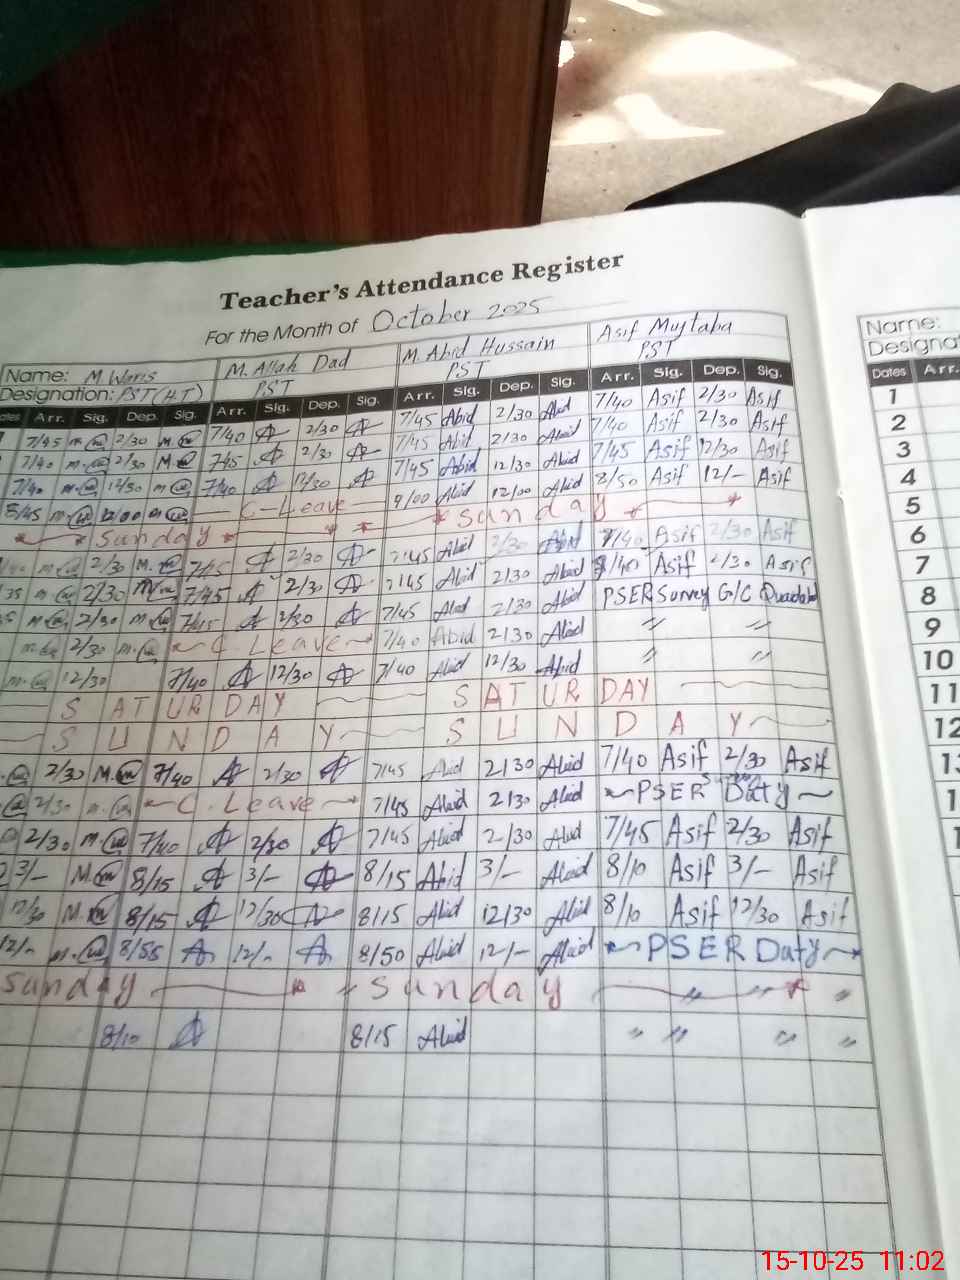 Teacher's Attendance Register
For the Month of October 2025
Name: M. Waris M. Allah Dad M. Abid Hussain Asif Mujtaba Name:
Designation: PST (H.T) PST PST PST Designat
ates Arr. Sig. Dep. Sig. Arr. Sig. Dep. Sig. Arr. Sig. Dep. Sig. Arr. Sig. Dep. Sig. Dates Arr.
7/45 2/30 7/40 2/30 7/45 Abid 2/30 Abid 7/40 Asif 2/30 Asif 1
7/40 2/30 7/45 2/30 7/45 Abid 2/30 Abid 7/40 Asif 2/30 Asif 2
7/40 12/30 7/40 12/30 7/45 Abid 12/30 Abid 7/45 Asif 12/30 Asif 3
8/45 12/00 C-Leave 9/00 Abid 12/00 Abid 8/50 Asif 12/- Asif 4
Sunday Sunday 5
2/30 7/45 2/30 7/45 Abid 2/30 Abid 7/40 Asif 2/30 Asif 6
2/30 7/45 2/30 7/45 Abid 2/30 Abid 7/40 Asif 2/30 Asif 7
2/30 7/45 2/30 7/45 Abid 2/30 Abid PSER Survey G/C 8
2/30 C. Leave 7/40 Abid 2/30 Abid " " 9
12/30 7/40 12/30 7/40 Abid 12/30 Abid " " 10
SATURDAY SATURDAY 11
SUNDAY SUNDAY 12
2/30 7/40 2/30 7/45 Abid 2/30 Abid 7/40 Asif 2/30 Asif 13
2/30 C. Leave 7/45 Abid 2/30 Abid PSER Duty 1
2/30 7/40 2/30 7/45 Abid 2/30 Abid 7/45 Asif 2/30 Asif 1
3/- 8/15 3/- 8/15 Abid 3/- Abid 8/10 Asif 3/- Asif
12/30 8/15 12/30 8/15 Abid 12/30 Abid 8/10 Asif 12/30 Asif
12/- 8/55 12/- 8/50 Abid 12/- Abid PSER Duty
Sunday Sunday " " "
8/10 8/15 Abid " " " "
15-10-25 11:02